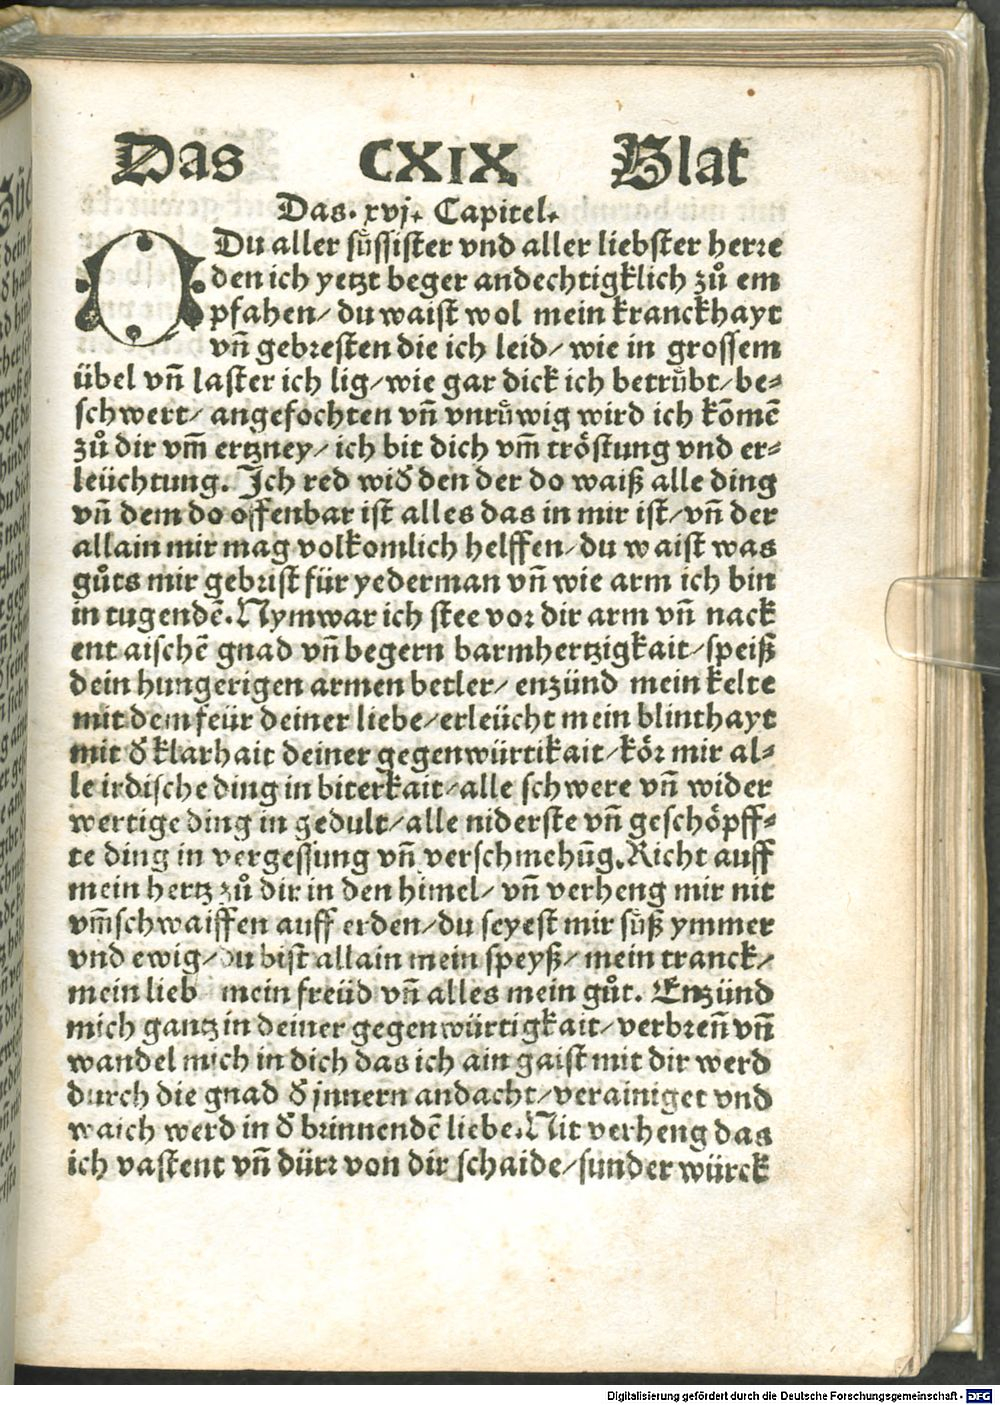 Das CXIX Blat
Das. xvj. Capitel.
O Du aller sůssister vnd aller liebster herre
den ich yetzt beger andechtigklich zů em
pfahen/ du waist wol mein kranckhayt
vñ gebresten die ich leid/ wie in grossem
übel vñ laster ich lig/ wie gar dick ich betrůbt/ be⸗
schwert/ angefochten vñ vnrůwig wird ich kōmē
zů dir vm̄ ertzney/ ich bit dich vm̄ tröstung vnd er⸗
leüchtung. Ich red wid̕ den der do waiß alle ding
vñ dem do offenbar ist alles das in mir ist/ vñ der
allain mir mag volkomlich helffen/ du waist was
gůts mir gebrist für yederman vñ wie arm ich bin
in tugendē. Nymwar ich stee vor dir arm vñ nack
ent aischē gnad vñ begern barmhertzigkait/ speiß
dein hungerigen armen betler/ enzünd mein kelte
mit dem feür deiner liebe/ erleücht mein blinthayt
mit d̕ klarhait deiner gegenwürtikait/ kör mir al⸗
le irdische ding in biterkait/ alle schwere vñ wider
wertige ding in gedult/ alle niderste vñ geschöpff⸗
te ding in vergessung vñ verschmehūg. Richt auff
mein hertz zů dir in den himel/ vñ verheng mir nit
vm̄schwaiffen auff erden/ du seyest mir sůß ymmer
vnd ewig/ du bist allain mein speyß/ mein tranck/
mein lieb mein freüd vñ alles mein gůt. Enzünd
mich gantz in deiner gegenwürtigkait/ verbreñ vñ
wandel mich in dich das ich ain gaist mit dir werd
durch die gnad d̕ jnnern andacht/ verainiget vnd
waich werd in d̕ brinnendē liebe. Nit verheng das
ich vastent vñ dürr von dir schaide/ sunder würck
Digitalisierung gefördert durch die Deutsche Forschungsgemeinschaft - DFG